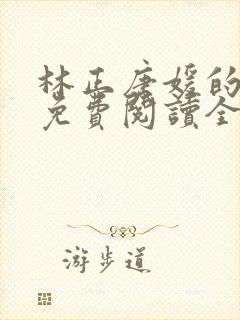 林正唐媛的
免費閱讀全
游步道